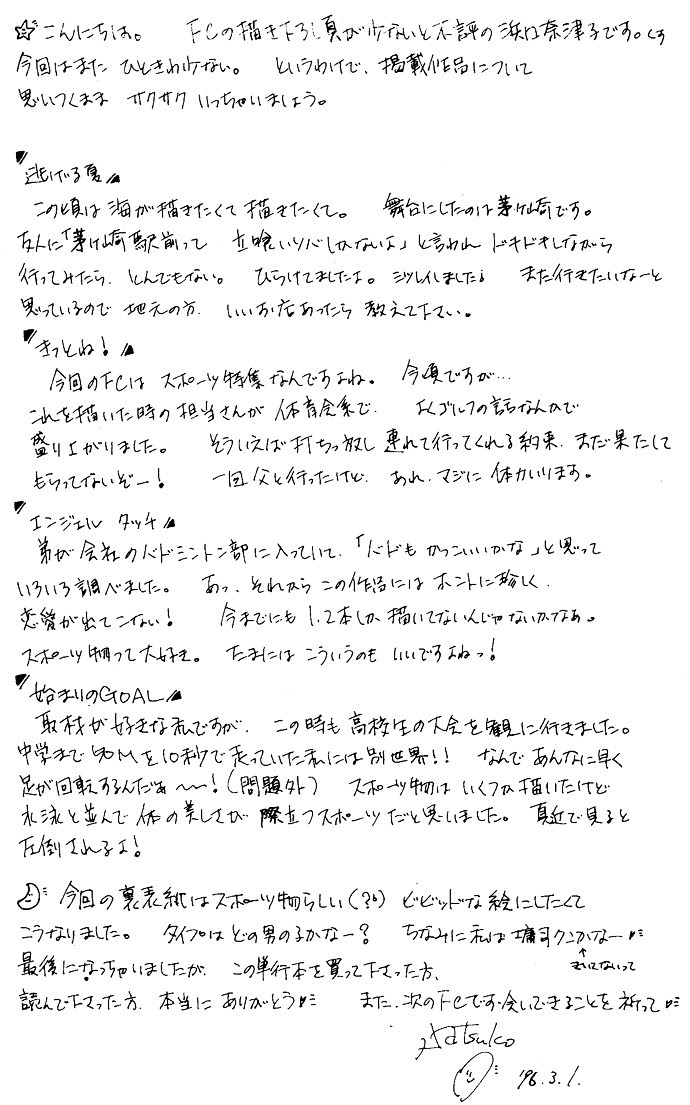 ☆こんにちは。 FCの描き下ろし頁が少ないと不評の浜口奈津子です。くす
今回はまた ひときわ少ない。 というわけで、掲載作品について
思いつくまま サクサク いっちゃいましょう。
〝逃げる夏〟
この頃は海が描きたくて描きたくて。 舞台にしたのは茅ヶ崎です。
友人に「茅ヶ崎駅前って 立喰いソバしかないよ」と言われ ドキドキしながら
行ってみたら、とんでもない。 ひらけてましたよ。シツレイしました。 また行きたいなーと
思っているので 地元の方、いいお店あったら 教えて下さい。
〝きっとね!〟
今回のFCは スポーツ特集なんですよね。 今頃ですが…
これを描いた時の担当さんが 体育会系で、 よくゴルフの話なんかで
盛り上がりました。 そういえば打ちっ放し 連れて行ってくれる約束、まだ果たして
もらってないぞー! 一回父と行ったけど、あれ、マジに 体力いります。
〝エンジェル タッチ〟
弟が会社のバドミントン部に入っていて、「バドも かっこいいかな」と思って
いろいろ調べました。 あっ、それから この作品には ホントに珍しく、
恋愛が出てこない! 今までにも 1、2本しか 描いてないんじゃないかなあ。
スポーツ物って大好き。 たまには こういうのも いいですよねっ!
〝始まりのGOAL〟
取材が好きな私ですが、この時も 高校生の大会を観に行きました。
中学まで50Mを10秒で走っていた私には別世界!! なんで あんなに早く
足が回転するんだぁ〜〜!(問題外) スポーツ物は いくつか描いたけど
水泳と並んで 体の美しさが 際立つスポーツだと思いました。 真近で見ると
圧倒されるよ!
今回の裏表紙はスポーツ物らしい(?) ビビッドな絵にしたくて
こうなりました。 タイプはどの男のコかなー? ちなみに私は クンかなー
きいてないって
最後になっちゃいましたが、この単行本を買って下さった方、
読んで下さった方、本当に ありがとう また、次のFCでお会いできることを 祈って
Natsuko
'96.3.1.